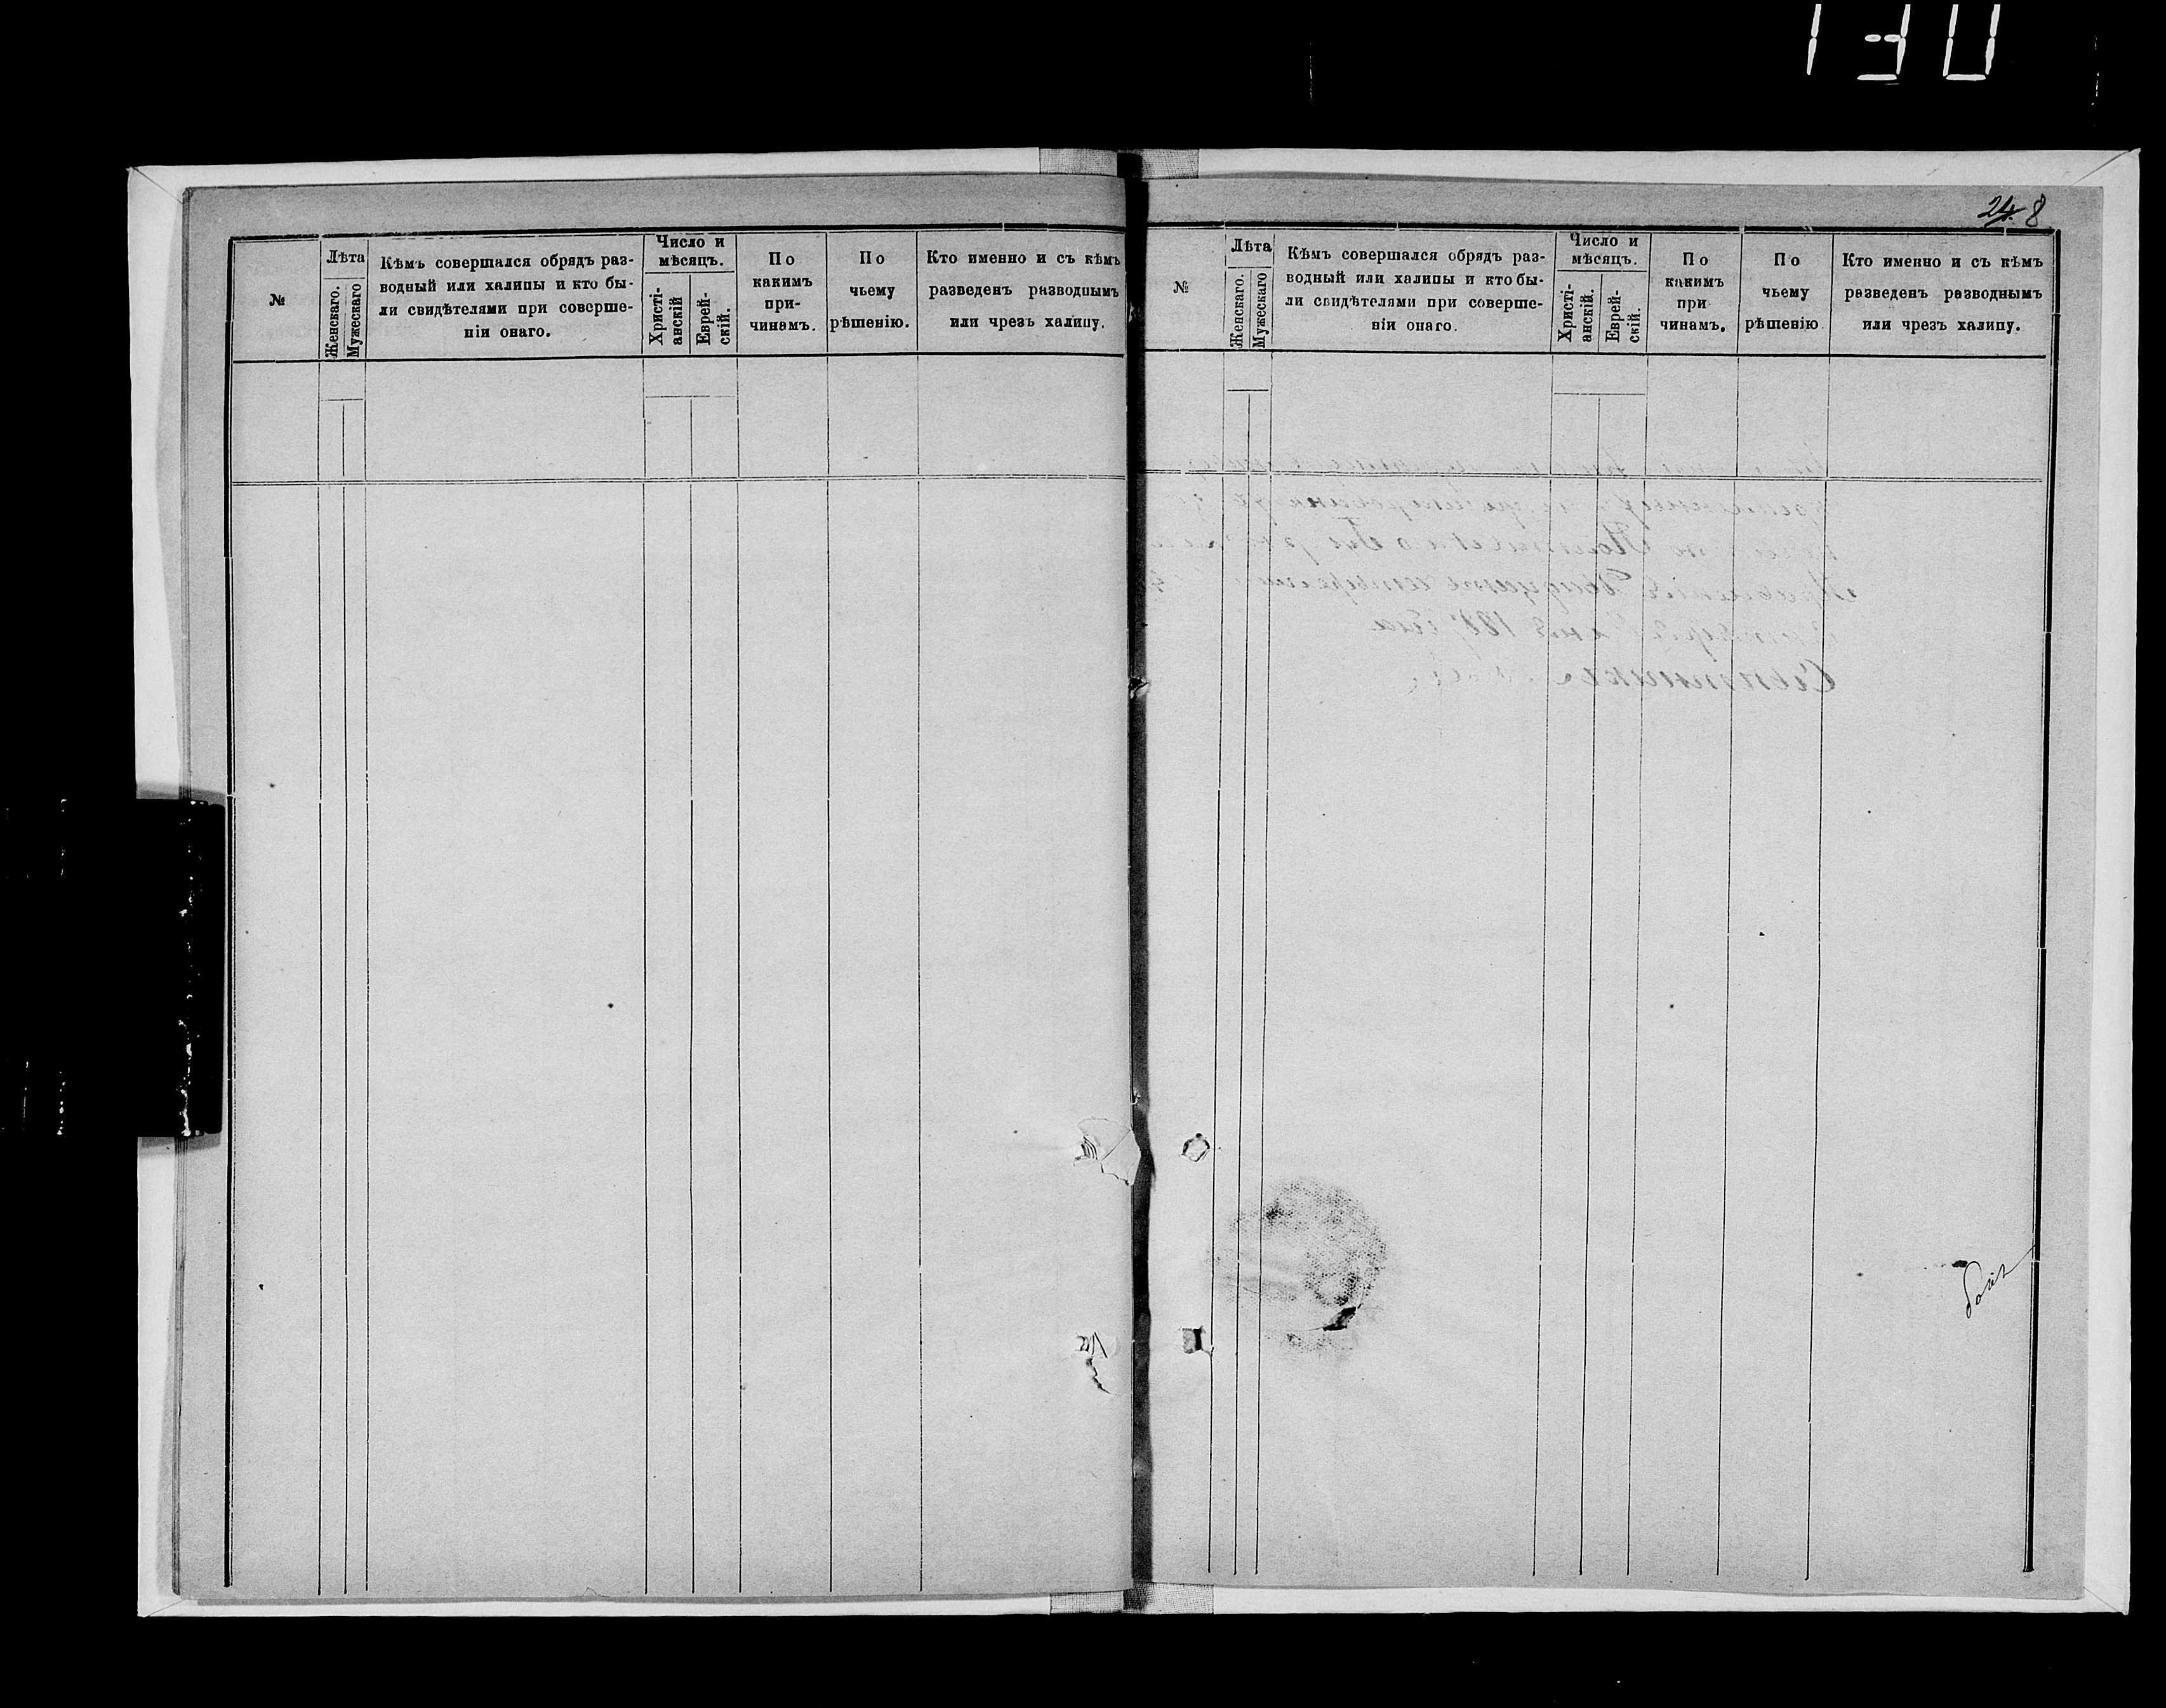 130
24 8
№
Лѣта
Женскаго.
Мужескаго
Кѣмъ совершался обрядъ раз-
водный или халицы и кто бы-
ли свидѣтелями при соверше-
ніи онаго.
Число и
мѣсяцъ.
Христі-
анскій
Еврей-
скій.
По
какимъ
при-
чинамъ.
По
чьему
рѣшенію.
Кто именно и съ кѣмъ
разведенъ разводнымъ
или чрезъ халицу.
№
Лѣта
Женскаго.
Мужескаго
Кѣмъ совершался обрядъ раз-
водный или халицы и кто бы-
ли свидѣтелями при соверше-
ніи онаго.
Число и
мѣсяцъ.
Христі-
анскій.
Еврей-
скій.
По
какимъ
при
чинамъ.
По
чьему
рѣшенію
Кто именно и съ кѣмъ
разведенъ разводнымъ
или чрезъ халицу.